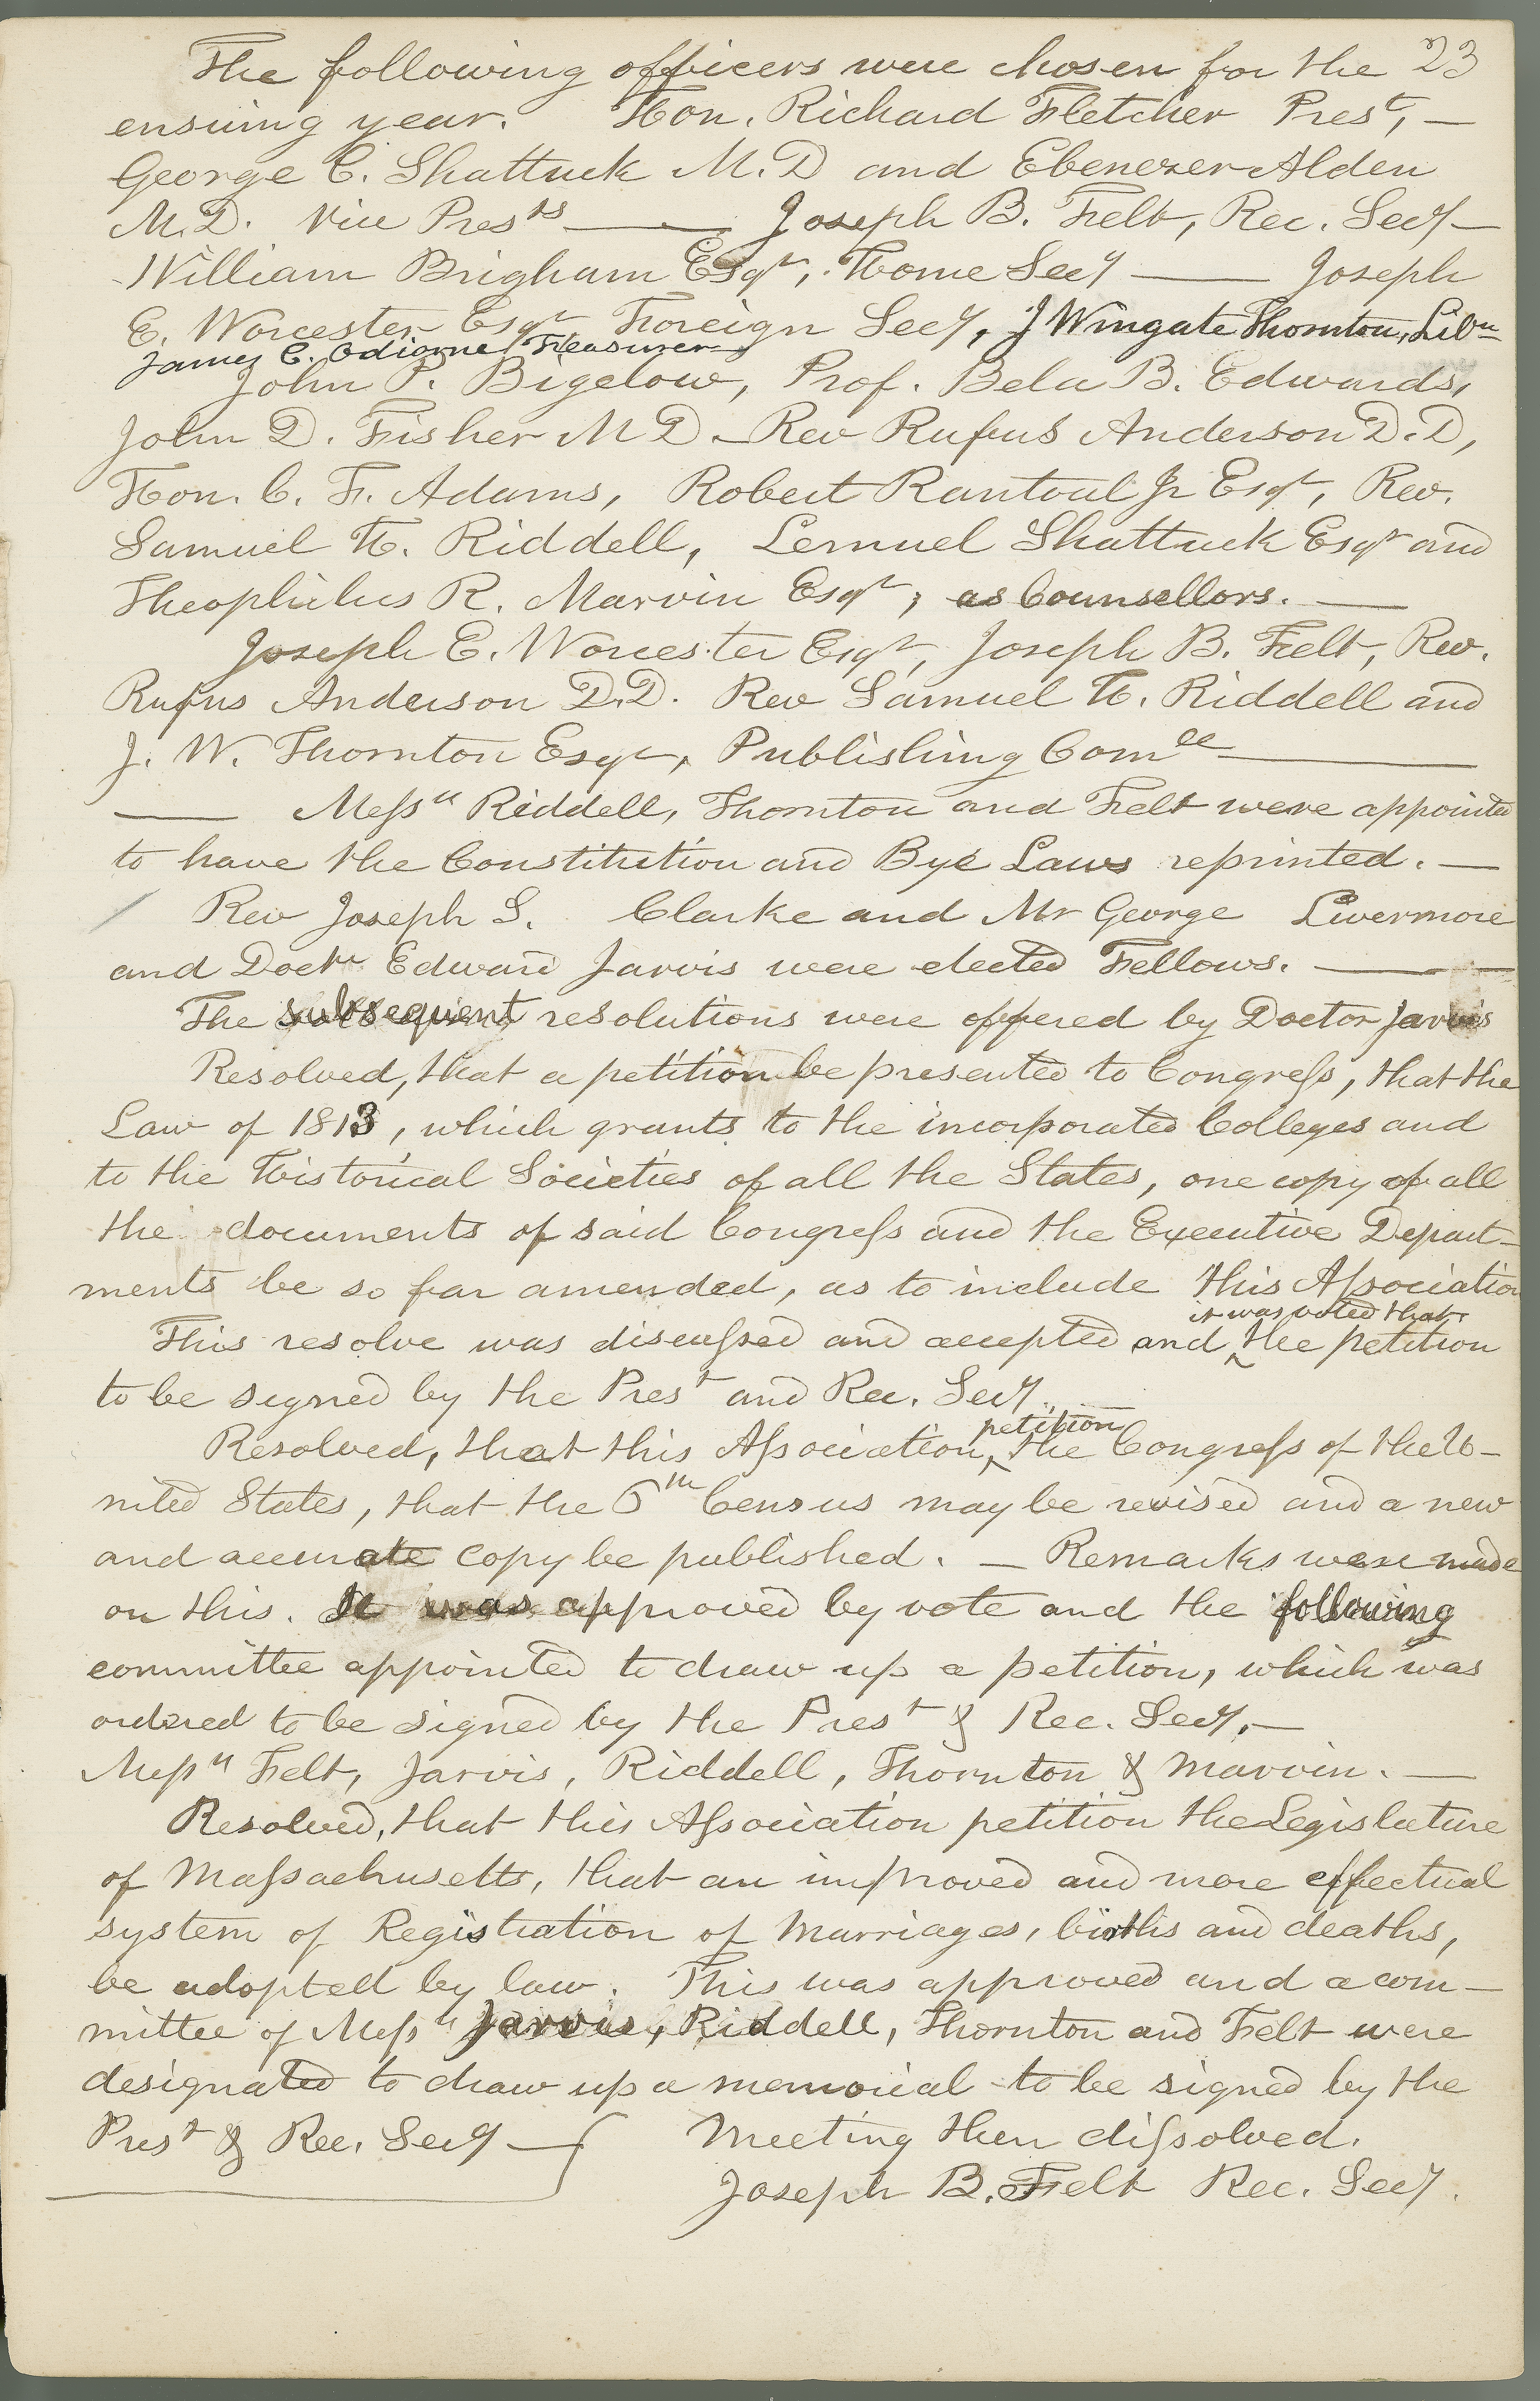 The following officers were chosen for the 23
ensuing year. Hon. Richard Fletcher Prest, —
George C. Shattuck M.D and Ebenezer Alden
M.D. Vice Prests — Joseph B. Felt, Rec. Secy —
William Brigham Esqr, Home Secy — Joseph
E. Worcester Esqr Foreign Secy, J Wingate Thornton, Libn
James C. Odiorne Treasurer
John P. Bigelow, Prof. Bela B. Edwards,
John D. Fisher M D — Rev Rufus Anderson D.D,
Hon. C. F. Adams, Robert Rantoul Jr Esqr, Rev.
Samuel H. Riddell, Lemuel Shattuck Esqr and
Theophilus R. Marvin Esqr, as Counsellors. —
Joseph E. Worcester Esqr, Joseph B. Felt, Rev.
Rufus Anderson D.D. Rev Samuel H. Riddell and
J. W. Thornton Esqr, Publishing Comee —
— Messrs Riddell, Thornton and Felt were appointed
to have the Constitution and Bye Laws reprinted. —
Rev Joseph S. Clarke and Mr George Livermore
and Doctr Edward Jarvis were elected Fellows. —
The subsequent resolutions were offered by Doctor Jarvis
Resolved, that a petition be presented to Congress, that the
Law of 1813, which grants to the incorporated Colleges and
to the Historical Societies of all the States, one copy of all
the documents of said Congress and the Executive Depart-
ments be so far amended, as to include this Association
it was voted that
This resolve was discussed and accepted and ^ the petition
to be signed by the Prest and Rec. Secy.
petition
Resolved, that this Association, ^ the Congress of the U-
nited States, that the 6th Census may be revised and a new
and accurate copy be published. — Remarks were made
on this. It was approved by vote and the following
committee appointed to draw up a petition, which was
ordered to be signed by the Prest & Rec. Secy, —
Messrs Felt, Jarvis, Riddell, Thornton & Marvin. —
Resolved, that this Association petition the Legislature
of Massachusetts, that an improved and more effectual
system of Registration of Marriages, births and deaths,
be adopted by law. This was approved and a com-
mittee of Messrs Jarvis, Riddell, Thornton and Felt were
designated to draw up a memorial to be signed by the
Prest & Rec. Secy — Meeting then dissolved.
Joseph B. Felt Rec. Secy.